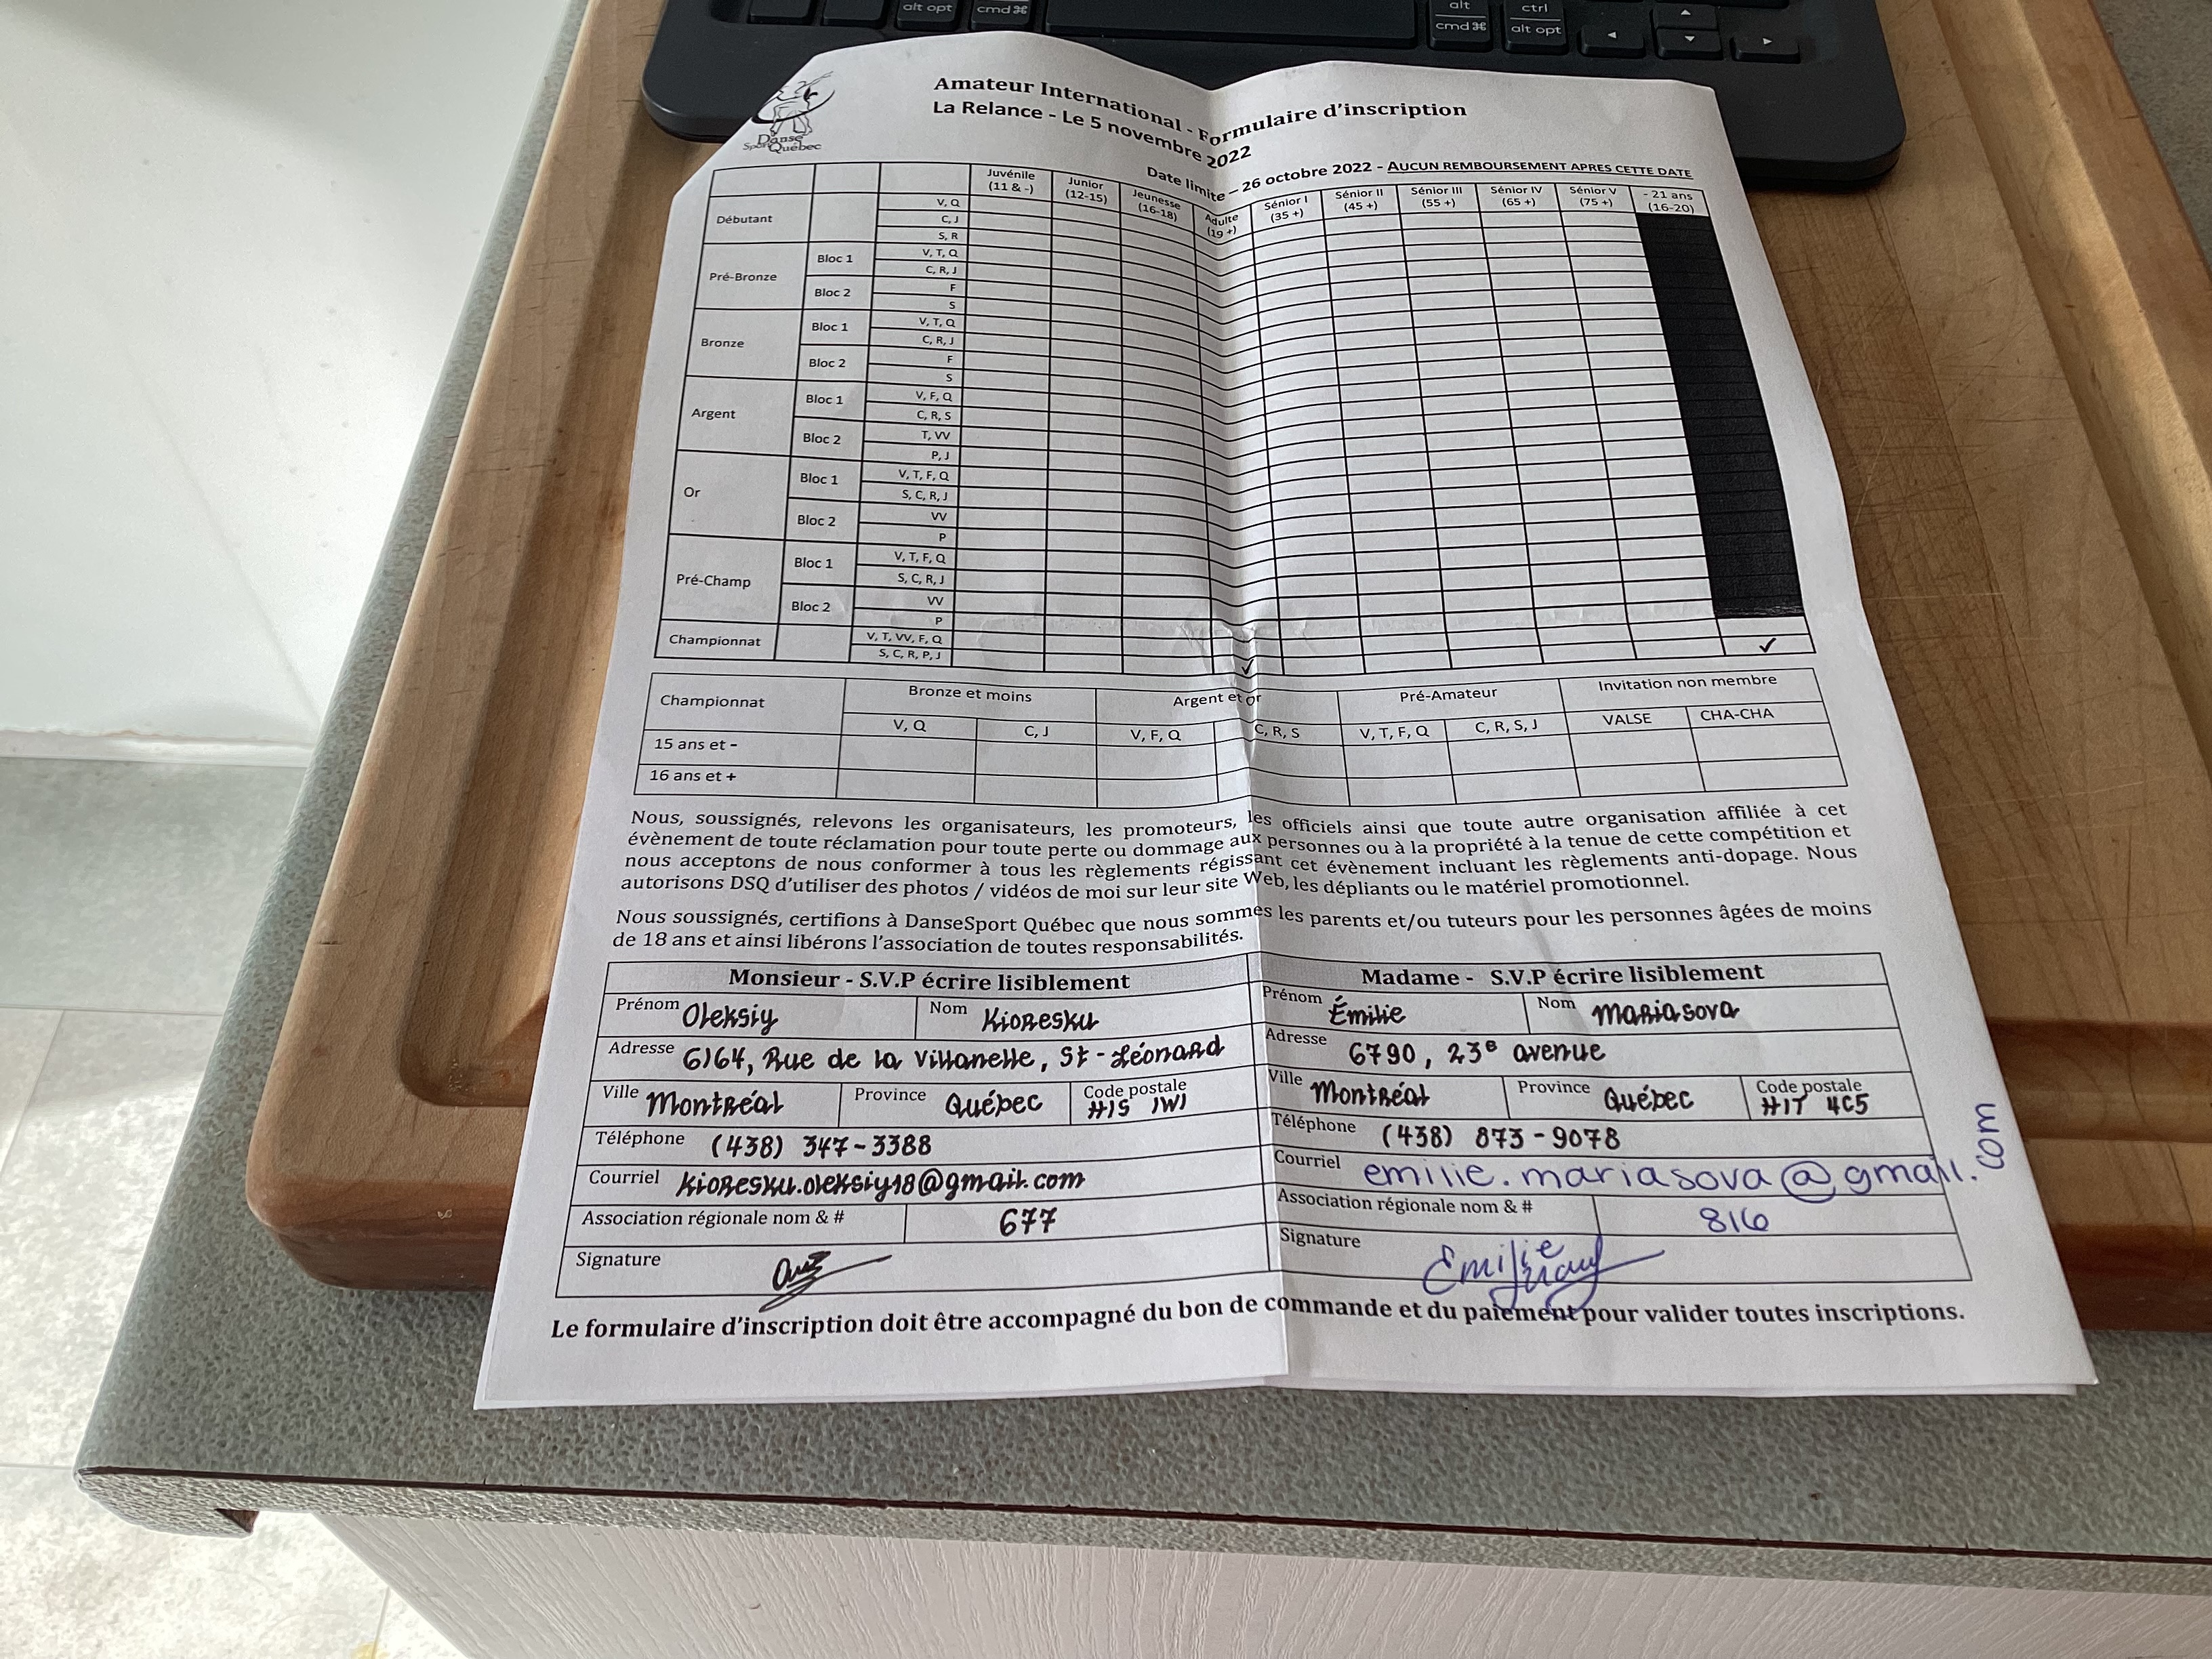 alt opt cmd⌘ alt cmd⌘ ctrl alt opt
Danse
Sport Québec
Amateur International - Formulaire d'inscription
La Relance - Le 5 novembre 2022
Date limite – 26 octobre 2022 - AUCUN REMBOURSEMENT APRES CETTE DATE
Juvénile (11 & -) Junior (12-15) Jeunesse (16-18) Adulte (19 +) Sénior I (35 +) Sénior II (45 +) Sénior III (55 +) Sénior IV (65 +) Sénior V (75 +) - 21 ans (16-20)
Débutant V, Q
C, J
S, R
Pré-Bronze Bloc 1 V, T, Q
C, R, J
Bloc 2 F
S
Bronze Bloc 1 V, T, Q
C, R, J
Bloc 2 F
S
Argent Bloc 1 V, F, Q
C, R, S
Bloc 2 T, VV
P, J
Or Bloc 1 V, T, F, Q
S, C, R, J
Bloc 2 VV
P
Pré-Champ Bloc 1 V, T, F, Q
S, C, R, J
Bloc 2 VV
P
Championnat V, T, VV, F, Q
S, C, R, P, J ✓ ✓
Championnat Bronze et moins Argent et or Pré-Amateur Invitation non membre
V, Q C, J V, F, Q C, R, S V, T, F, Q C, R, S, J VALSE CHA-CHA
15 ans et -
16 ans et +
Nous, soussignés, relevons les organisateurs, les promoteurs, les officiels ainsi que toute autre organisation affiliée à cet
évènement de toute réclamation pour toute perte ou dommage aux personnes ou à la propriété à la tenue de cette compétition et
nous acceptons de nous conformer à tous les règlements régissant cet évènement incluant les règlements anti-dopage. Nous
autorisons DSQ d'utiliser des photos / vidéos de moi sur leur site Web, les dépliants ou le matériel promotionnel.
Nous soussignés, certifions à DanseSport Québec que nous sommes les parents et/ou tuteurs pour les personnes âgées de moins
de 18 ans et ainsi libérons l'association de toutes responsabilités.
Monsieur - S.V.P écrire lisiblement
Prénom Oleksiy Nom Kioresku
Adresse 6164, Rue de la Villanelle, St-Léonard
Ville Montréal Province Québec Code postale H1S 1W1
Téléphone (438) 347-3388
Courriel kioresku.oleksiy18@gmail.com
Association régionale nom & # 677
Signature
Madame - S.V.P écrire lisiblement
Prénom Émilie Nom Mariasova
Adresse 6790, 23e avenue
Ville Montréal Province Québec Code postale H1T 4C5
Téléphone (438) 873-9078
Courriel emilie.mariasova@gmail.com
Association régionale nom & # 816
Signature Emilie
Le formulaire d'inscription doit être accompagné du bon de commande et du paiement pour valider toutes inscriptions.